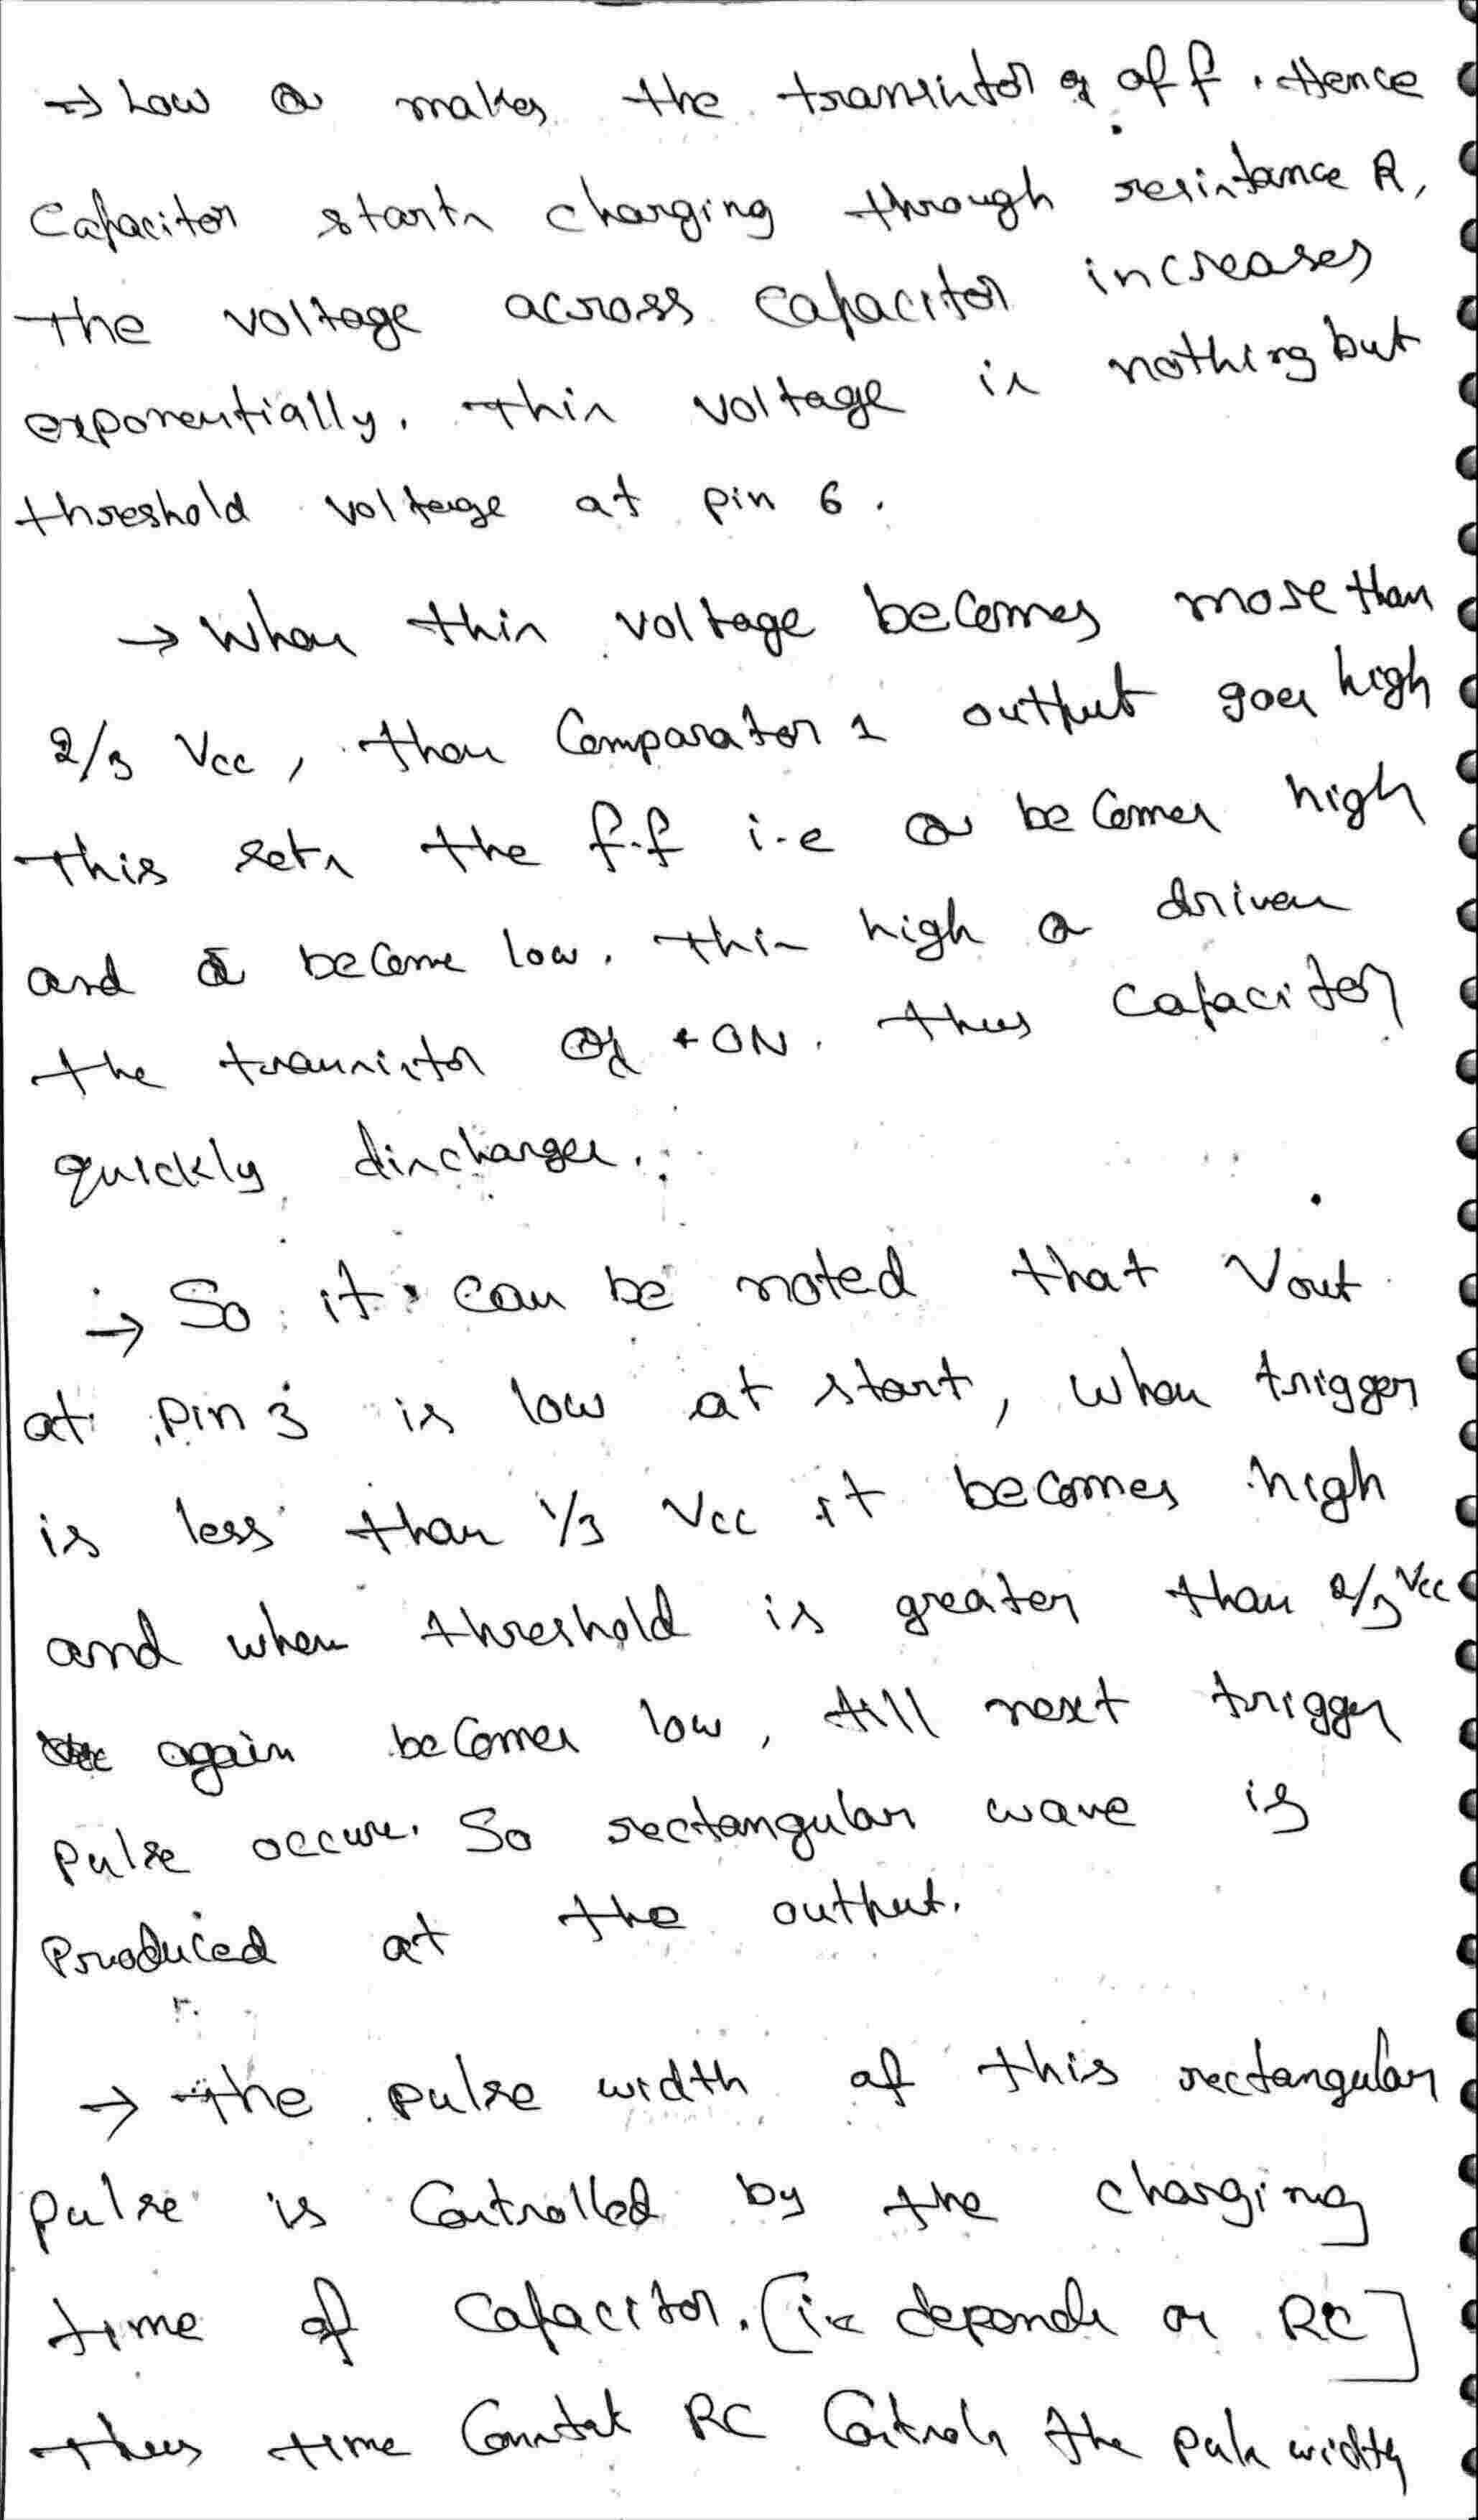 → Low Q makes the transistor Q off. Hence
Capacitor starts charging through resistance R,
The voltage across capacitor increases
exponentially. This voltage is nothing but
threshold voltage at pin 6.
→ When this voltage becomes more than
2/3 Vcc, then Comparator 1 output goes high
This sets the f.f i.e Q becomes high
and Q̅ become low. This high Q drives
the transistor Qd ON. Thus Capacitor
quickly discharges.
→ So it can be noted that Vout
at pin 3 is low at start, when trigger
is less than 1/3 Vcc it becomes high
and when threshold is greater than 2/3 Vcc
again becomes low, till next trigger
pulse occurs. So rectangular wave is
Produced at the output.
→ The pulse width of this rectangular
pulse is Controlled by the charging
time of Capacitor. [ie depends on RC]
Thus time Constat RC Controls the pulse width